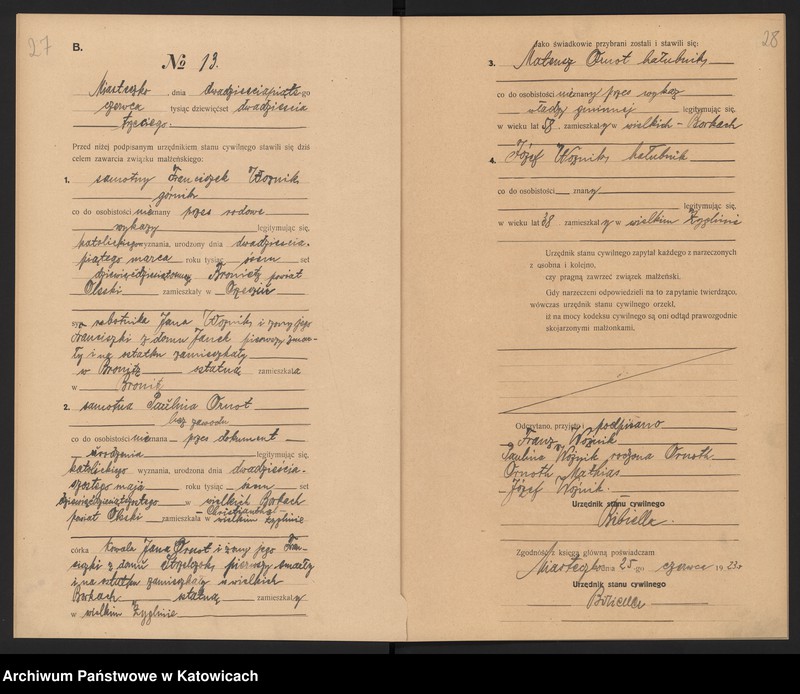 27
B.
№ 13.
Miasteczko, dnia dwudziestapiąte-go
czerwca tysiąc dziewięćset dwudziesta
trzeciego.
Przed niżej podpisanym urzędnikiem stanu cywilnego stawili się dziś
celem zawarcia związku małżeńskiego:
1. samotny Franciszek Woznik
górnik
co do osobistości nieznany przez rodowe
wykazy legitymując się,
katolickiego wyznania, urodzony dnia dwudziesta-
piątego marca roku tysiąc ósem set
powiat
Oleski zamieszkały w
syn robotnika Jana Woznik i żony jego
Franciszki z domu Janek pierwszy zmar-
ły i na statku zamieszkały
w Bronitz statną zamieszkała
w
2. samotna Paulina Ornot
bez zawodu
co do osobistości nieznana przez dokument
urodzenia legitymując się,
katolickiego wyznania, urodzona dnia dwudziesta-
szóstego maja roku tysiąc ósem set
w wielkich Borkach
powiat Oleski zamieszkała w wielkim Żyglinie
córka kowala Jana Ornot i żony jego Fran-
ciszki z domu pierwszy zmarły
i na statku zamieszkały w wielkich
Borkach statną zamieszkały
w wielkim Żyglinie
28
Jako świadkowie przybrani zostali i stawili się:
3. Mateusz Ornot hałubnik
co do osobistości nieznany przez wykaz
władzy gminnej legitymując się,
w wieku lat 58, zamieszkały w wielkich - Borkach
4. Józef Woznik hałubnik
co do osobistości znany
legitymując się,
w wieku lat 38 zamieszkały w wielkim Żyglinie
Urzędnik stanu cywilnego zapytał każdego z narzeczonych
z osobna i kolejno,
czy pragną zawrzeć związek małżeński.
Gdy narzeczeni odpowiedzieli na to zapytanie twierdząco,
wówczas urzędnik stanu cywilnego orzekł,
iż na mocy kodeksu cywilnego są oni odtąd prawozgodnie
skojarzonymi małżonkami.
Odczytano, przyjęto i podpisano
Franz Woźnik
Paulina Woźnik rodzona Ornoth.
Ornoth Mathias
Józef Woźnik.
Urzędnik stanu cywilnego
Bibiella.
Zgodność z księgą główną poświadczam
Miasteczko dnia 25 go czerwca 1923r
Urzędnik stanu cywilnego
Bibiella
Archiwum Państwowe w Katowicach